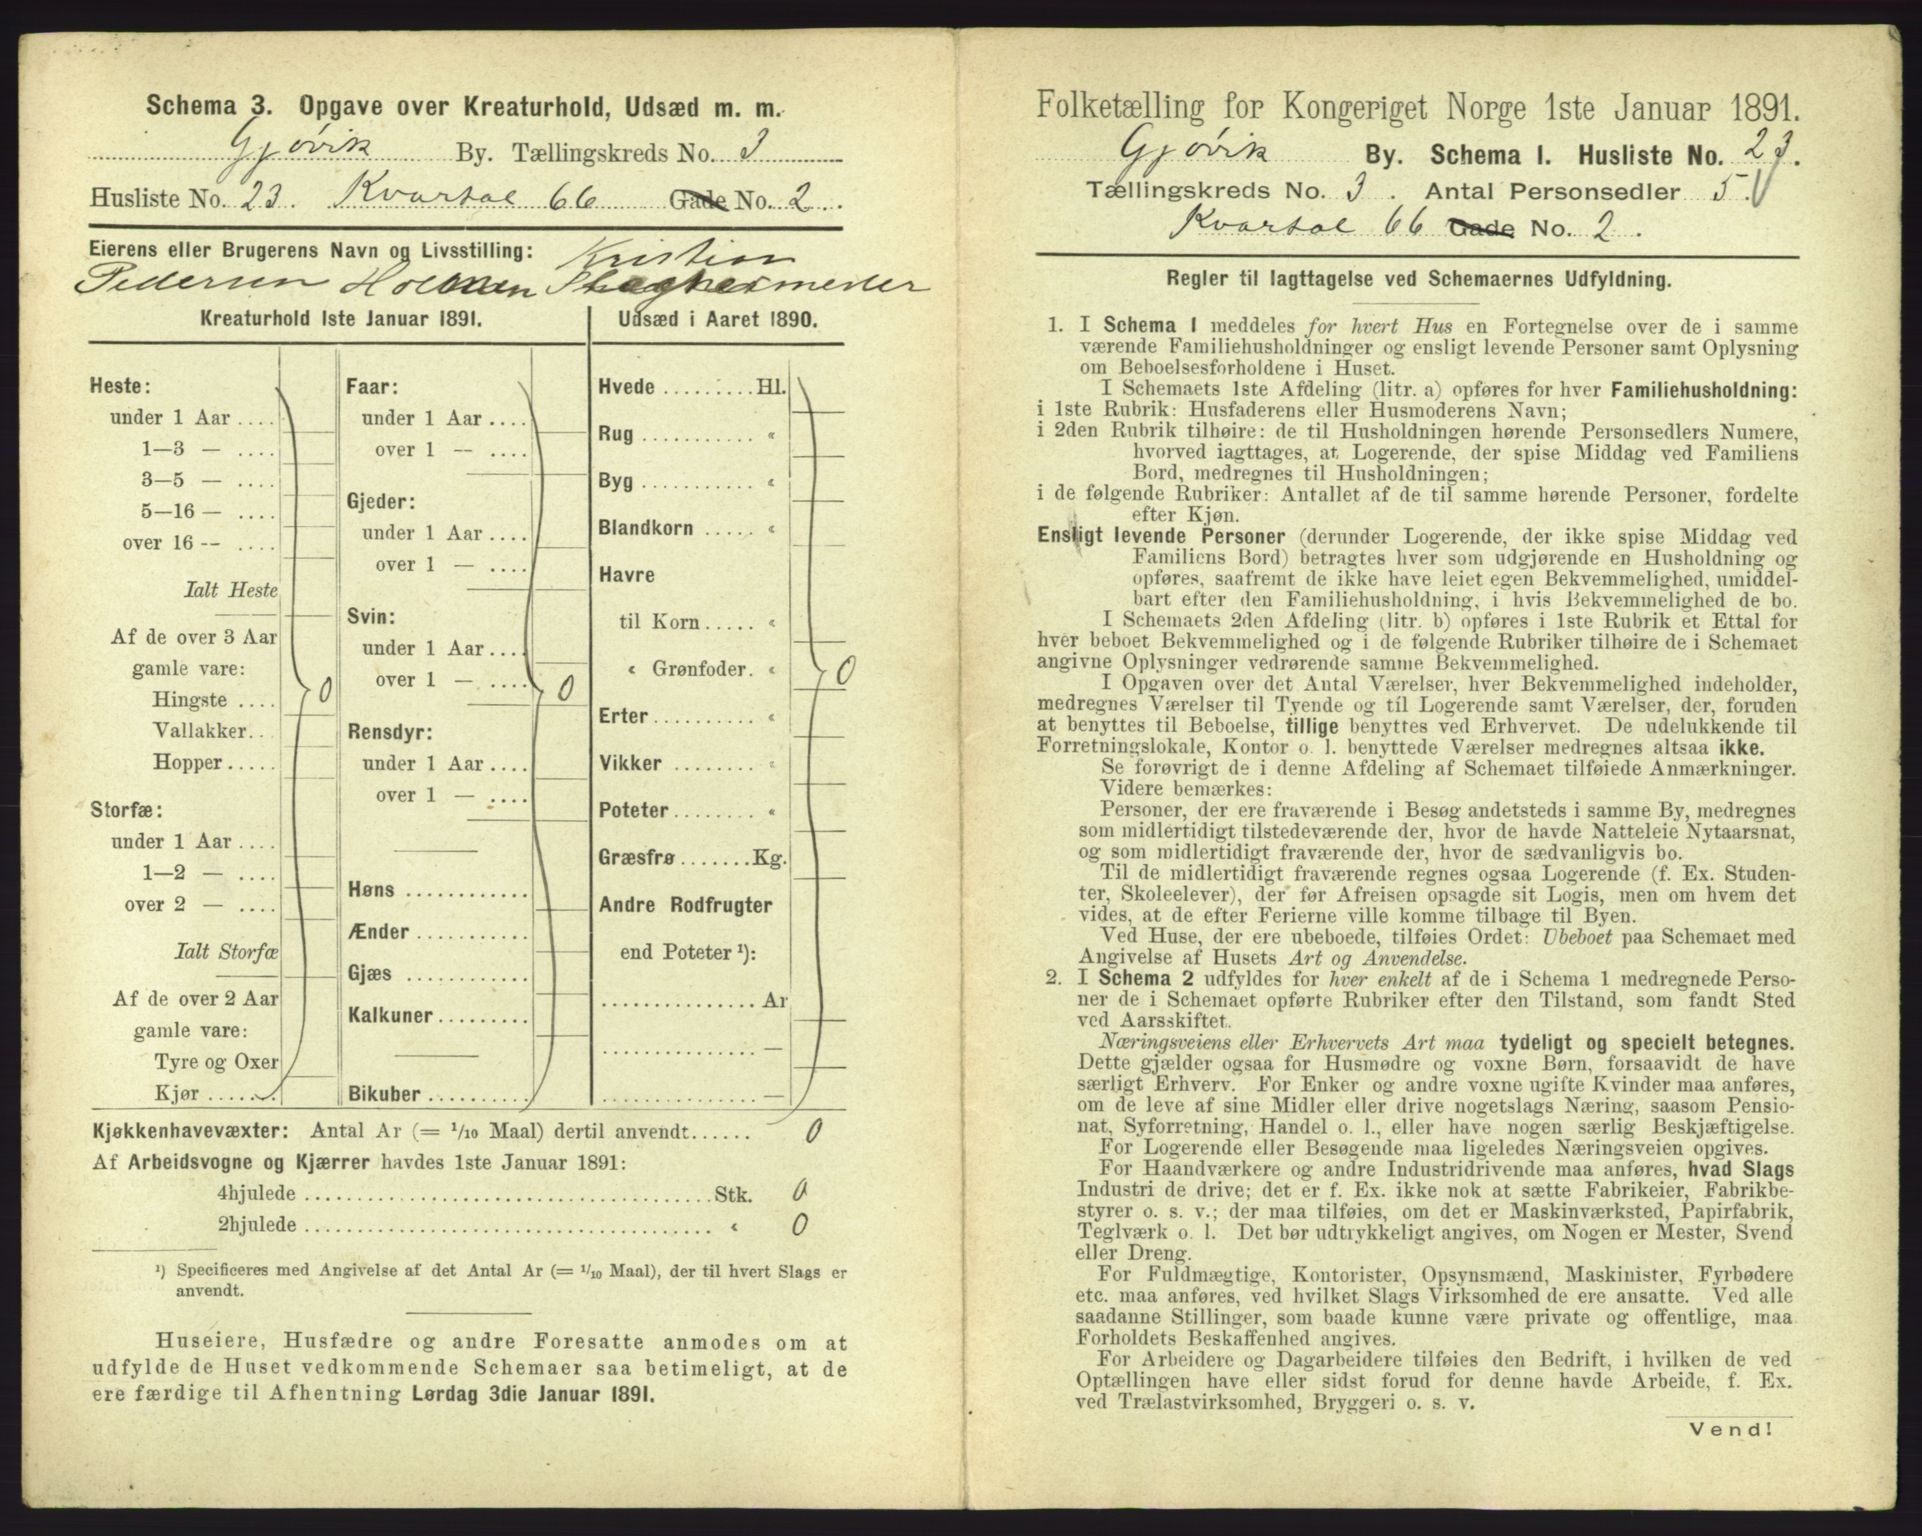 Schema 3. Opgave over Kreaturhold, Udsæd m. m.
Gjøvik By. Tællingskreds No. 3
Husliste No. 23. Kvartal 66 Gade No. 2.
Eierens eller Brugerens Navn og Livsstilling: Kristian
Pedersen Holmen
Kreaturhold 1ste Januar 1891.
Heste:
under 1 Aar ....
1—3 — ....
3—5 — ....
5—16 — ....
over 16 -- ....
Ialt Heste
Af de over 3 Aar
gamle vare:
Hingste .... 0
Vallakker..
Hopper.....
Storfæ:
under 1 Aar ....
1—2 — ....
over 2 — ....
Ialt Storfæ
Af de over 2 Aar
gamle vare:
Tyre og Oxer
Kjør ......
Faar:
under 1 Aar ....
over 1 -- ....
Gjeder:
under 1 Aar ....
over 1 — ....
Svin:
under 1 Aar....
over 1 — .... 0
Rensdyr:
under 1 Aar ....
over 1 — ....
Høns ..........
Ænder ..........
Gjæs ..........
Kalkuner.........
Bikuber .........
Udsæd i Aaret 1890.
Hvede ......... Hl.
Rug ........... «
Byg ........... «
Blandkorn ..... «
Havre
til Korn..... «
« Grønfoder. « 0
Erter.......... «
Vikker ........ «
Poteter........ «
Græsfrø.......Kg.
Andre Rodfrugter
end Poteter ¹):
............... Ar
............... —
............... —
Kjøkkenhavevæxter: Antal Ar (= 1/10 Maal) dertil anvendt...... 0
Af Arbeidsvogne og Kjærrer havdes 1ste Januar 1891:
4hjulede ..................................... Stk. 0
2hjulede ..................................... « 0
¹) Specificeres med Angivelse af det Antal Ar (= 1/10 Maal), der til hvert Slags er
anvendt.
Huseiere, Husfædre og andre Foresatte anmodes om at
udfylde de Huset vedkommende Schemaer saa betimeligt, at de
ere færdige til Afhentning Lørdag 3die Januar 1891.
Folketælling for Kongeriget Norge 1ste Januar 1891.
Gjøvik By. Schema I. Husliste No. 23.
Tællingskreds No. 3. Antal Personsedler 5.
Kvartal 66 Gade No. 2.
Regler til Iagttagelse ved Schemaernes Udfyldning.
1. I Schema I meddeles for hvert Hus en Fortegnelse over de i samme
værende Familiehusholdninger og ensligt levende Personer samt Oplysning
om Beboelsesforholdene i Huset.
I Schemaets 1ste Afdeling (litr. a) opføres for hver Familiehusholdning:
i 1ste Rubrik: Husfaderens eller Husmoderens Navn;
i 2den Rubrik tilhøire: de til Husholdningen hørende Personsedlers Numere,
hvorved iagttages, at Logerende, der spise Middag ved Familiens
Bord, medregnes til Husholdningen;
i de følgende Rubriker: Antallet af de til samme hørende Personer, fordelte
efter Kjøn.
Ensligt levende Personer (derunder Logerende, der ikke spise Middag ved
Familiens Bord) betragtes hver som udgjørende en Husholdning og
opføres, saafremt de ikke have leiet egen Bekvemmelighed, umiddel-
bart efter den Familiehusholdning, i hvis Bekvemmelighed de bo.
I Schemaets 2den Afdeling (litr. b) opføres i 1ste Rubrik et Ettal for
hver beboet Bekvemmelighed og i de følgende Rubriker tilhøire de i Schemaet
angivne Oplysninger vedrørende samme Bekvemmelighed.
I Opgaven over det Antal Værelser, hver Bekvemmelighed indeholder,
medregnes Værelser til Tyende og til Logerende samt Værelser, der, foruden
at benyttes til Beboelse, tillige benyttes ved Erhvervet. De udelukkende til
Forretningslokale, Kontor o. l. benyttede Værelser medregnes altsaa ikke.
Se forøvrigt de i denne Afdeling af Schemaet tilføiede Anmærkninger.
Videre bemærkes:
Personer, der ere fraværende i Besøg andetsteds i samme By, medregnes
som midlertidigt tilstedeværende der, hvor de havde Natteleie Nytaarsnat,
og som midlertidigt fraværende der, hvor de sædvanligvis bo.
Til de midlertidigt fraværende regnes ogsaa Logerende (f. Ex. Studen-
ter, Skoleelever), der før Afreisen opsagde sit Logis, men om hvem det
vides, at de efter Ferierne ville komme tilbage til Byen.
Ved Huse, der ere ubeboede, tilføies Ordet: Ubeboet paa Schemaet med
Angivelse af Husets Art og Anvendelse.
2. I Schema 2 udfyldes for hver enkelt af de i Schema 1 medregnede Perso-
ner de i Schemaet opførte Rubriker efter den Tilstand, som fandt Sted
ved Aarsskiftet.
Næringsveiens eller Erhvervets Art maa tydeligt og specielt betegnes.
Dette gjælder ogsaa for Husmødre og voxne Børn, forsaavidt de have
særligt Erhverv. For Enker og andre voxne ugifte Kvinder maa anføres,
om de leve af sine Midler eller drive nogetslags Næring, saasom Pensio-
nat, Syforretning, Handel o. l., eller have nogen særlig Beskjæftigelse.
For Logerende eller Besøgende maa ligeledes Næringsveien opgives.
For Haandværkere og andre Industridrivende maa anføres, hvad Slags
Industri de drive; det er f. Ex. ikke nok at sætte Fabrikeier, Fabrikbe-
styrer o. s. v.; der maa tilføies, om det er Maskinværksted, Papirfabrik,
Teglværk o. l. Det bør udtrykkeligt angives, om Nogen er Mester, Svend
eller Dreng.
For Fuldmægtige, Kontorister, Opsynsmænd, Maskinister, Fyrbødere
etc. maa anføres, ved hvilket Slags Virksomhed de ere ansatte. Ved alle
saadanne Stillinger, som baade kunne være private og offentlige, maa
Forholdets Beskaffenhed angives.
For Arbeidere og Dagarbeidere tilføies den Bedrift, i hvilken de ved
Optællingen have eller sidst forud for denne havde Arbeide, f. Ex.
ved Trælastvirksomhed, Bryggeri o. s. v.
Vend!